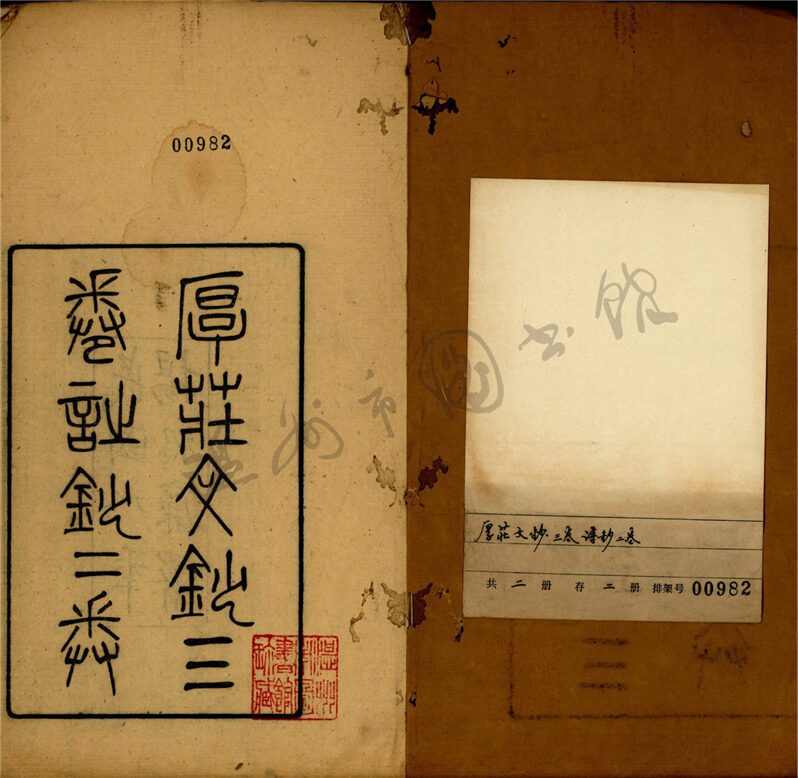 00982
厚莊文鈔三
卷詩鈔二卷
温州市圖書館珍藏
温州市图书馆
厚莊文鈔三卷诗鈔二卷
共二册存二册排架号00982